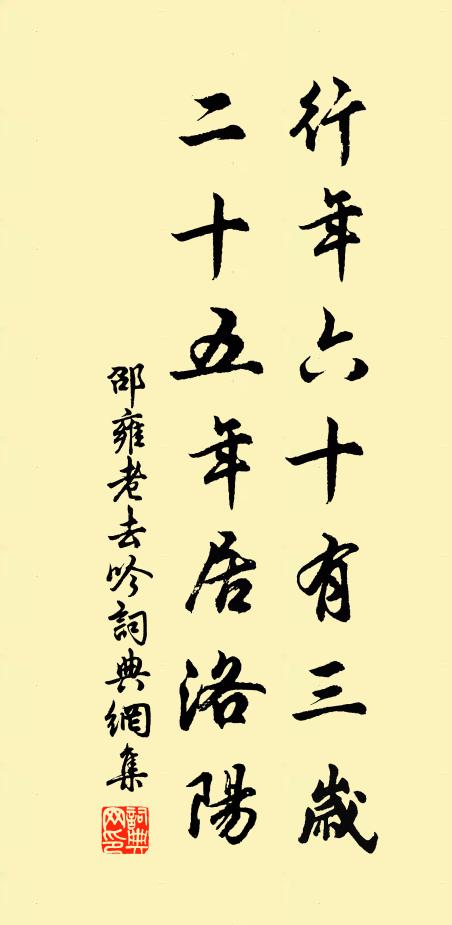 行年六十有三歲
二十五年居洛陽
邵雍老去吟詞典網集
詞典网印